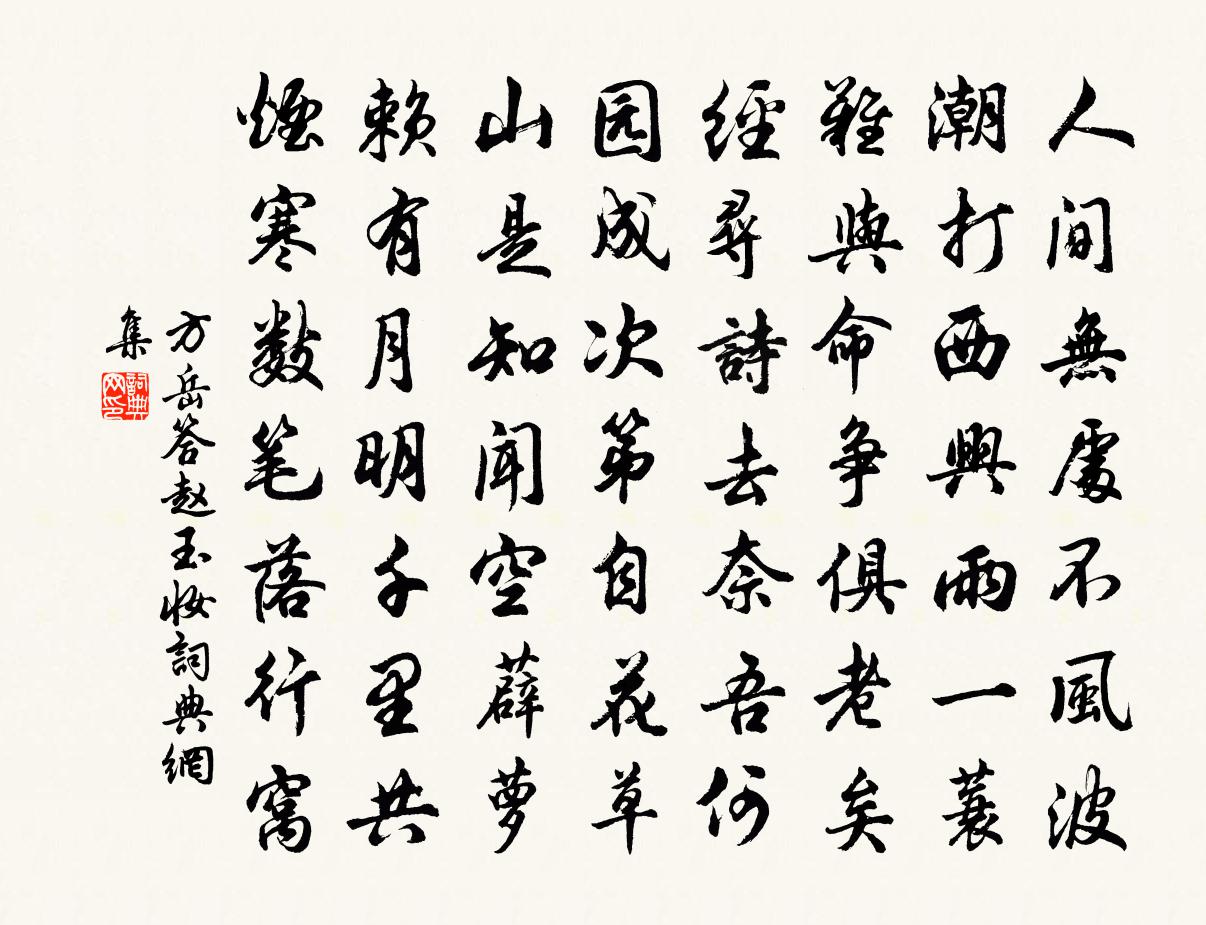 人间無處不風波
潮打西興雨一蓑
難與命争俱老矣
經尋詩去奈吾何
园成次第自花草
山是知聞空薜萝
賴有月明千里共
煙寒数笔落行窩
方岳答赵玉妆詞典網
集
詞典网印